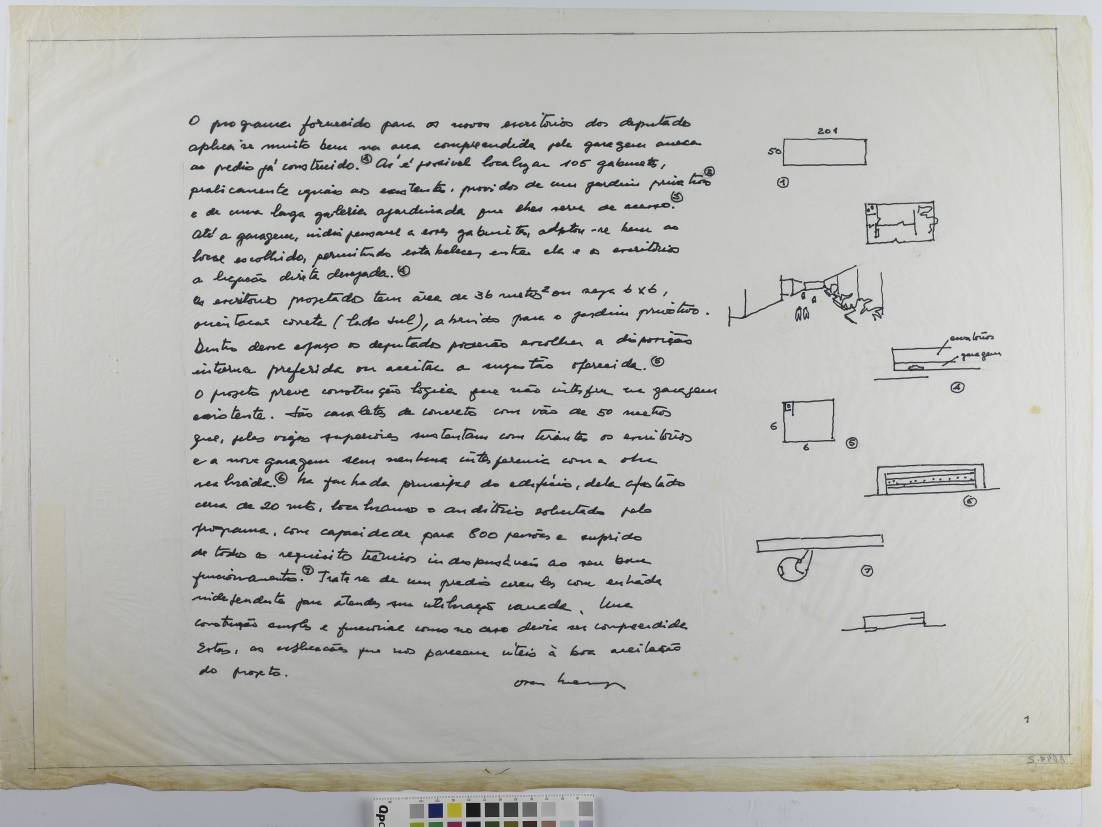 O programa fornecido para os novos escritórios dos deputados
aplica-se muito bem na area compreendida pela garagem anexa
ao predio já construido. ① Aí é possivel localizar 105 gabinetes,
praticamente iguais aos existentes, providos de um jardim privativo ②
e de uma larga galeria ajardinada que lhes serve de acesso. ③
Até a garagem, indispensavel a esses gabinetes, adptou-se bem ao
local escolhido, permitindo estabelecer entre ela e os escritórios
a ligação direta desejada. ④
Os escritorio projetado tem área de 36 metos² ou seja 6 x 6,
orientação correta (lado sul), abrindo para o jardim privativo.
Dentro desse espaço os deputados poderão escolher a disposição
interna preferida ou aceitar a sugestão oferecida. ⑤
O projeto preve construção lógica que não interfere na garagem
existente. São cavaletes de concreto com vão de 50 metros
que, pelas vigas superiores sustentam com tirantes os escritórios
e a nova garagem sem nenhuma interferencia com a obra
realizada. ⑥ Na fachada principal do edifício, dela afastado
cerca de 20 mts, localizamos o auditório solicitado pelo
programa, com capacidade para 800 pessoas e suprido
de todos os requisitos técnicos indispensáveis ao seu bom
funcionamento. ⑦ Trata-se de um predio circular com entrada
independente para atender sua utilização variada. Uma
construção simples e funcional como no caso devia ser compreendida
Estas, as explicações que nos parecem uteis à boa aceitação
do projeto.
201
50
①
escritórios
garagem
④
6
6
⑤
⑥
⑦
1